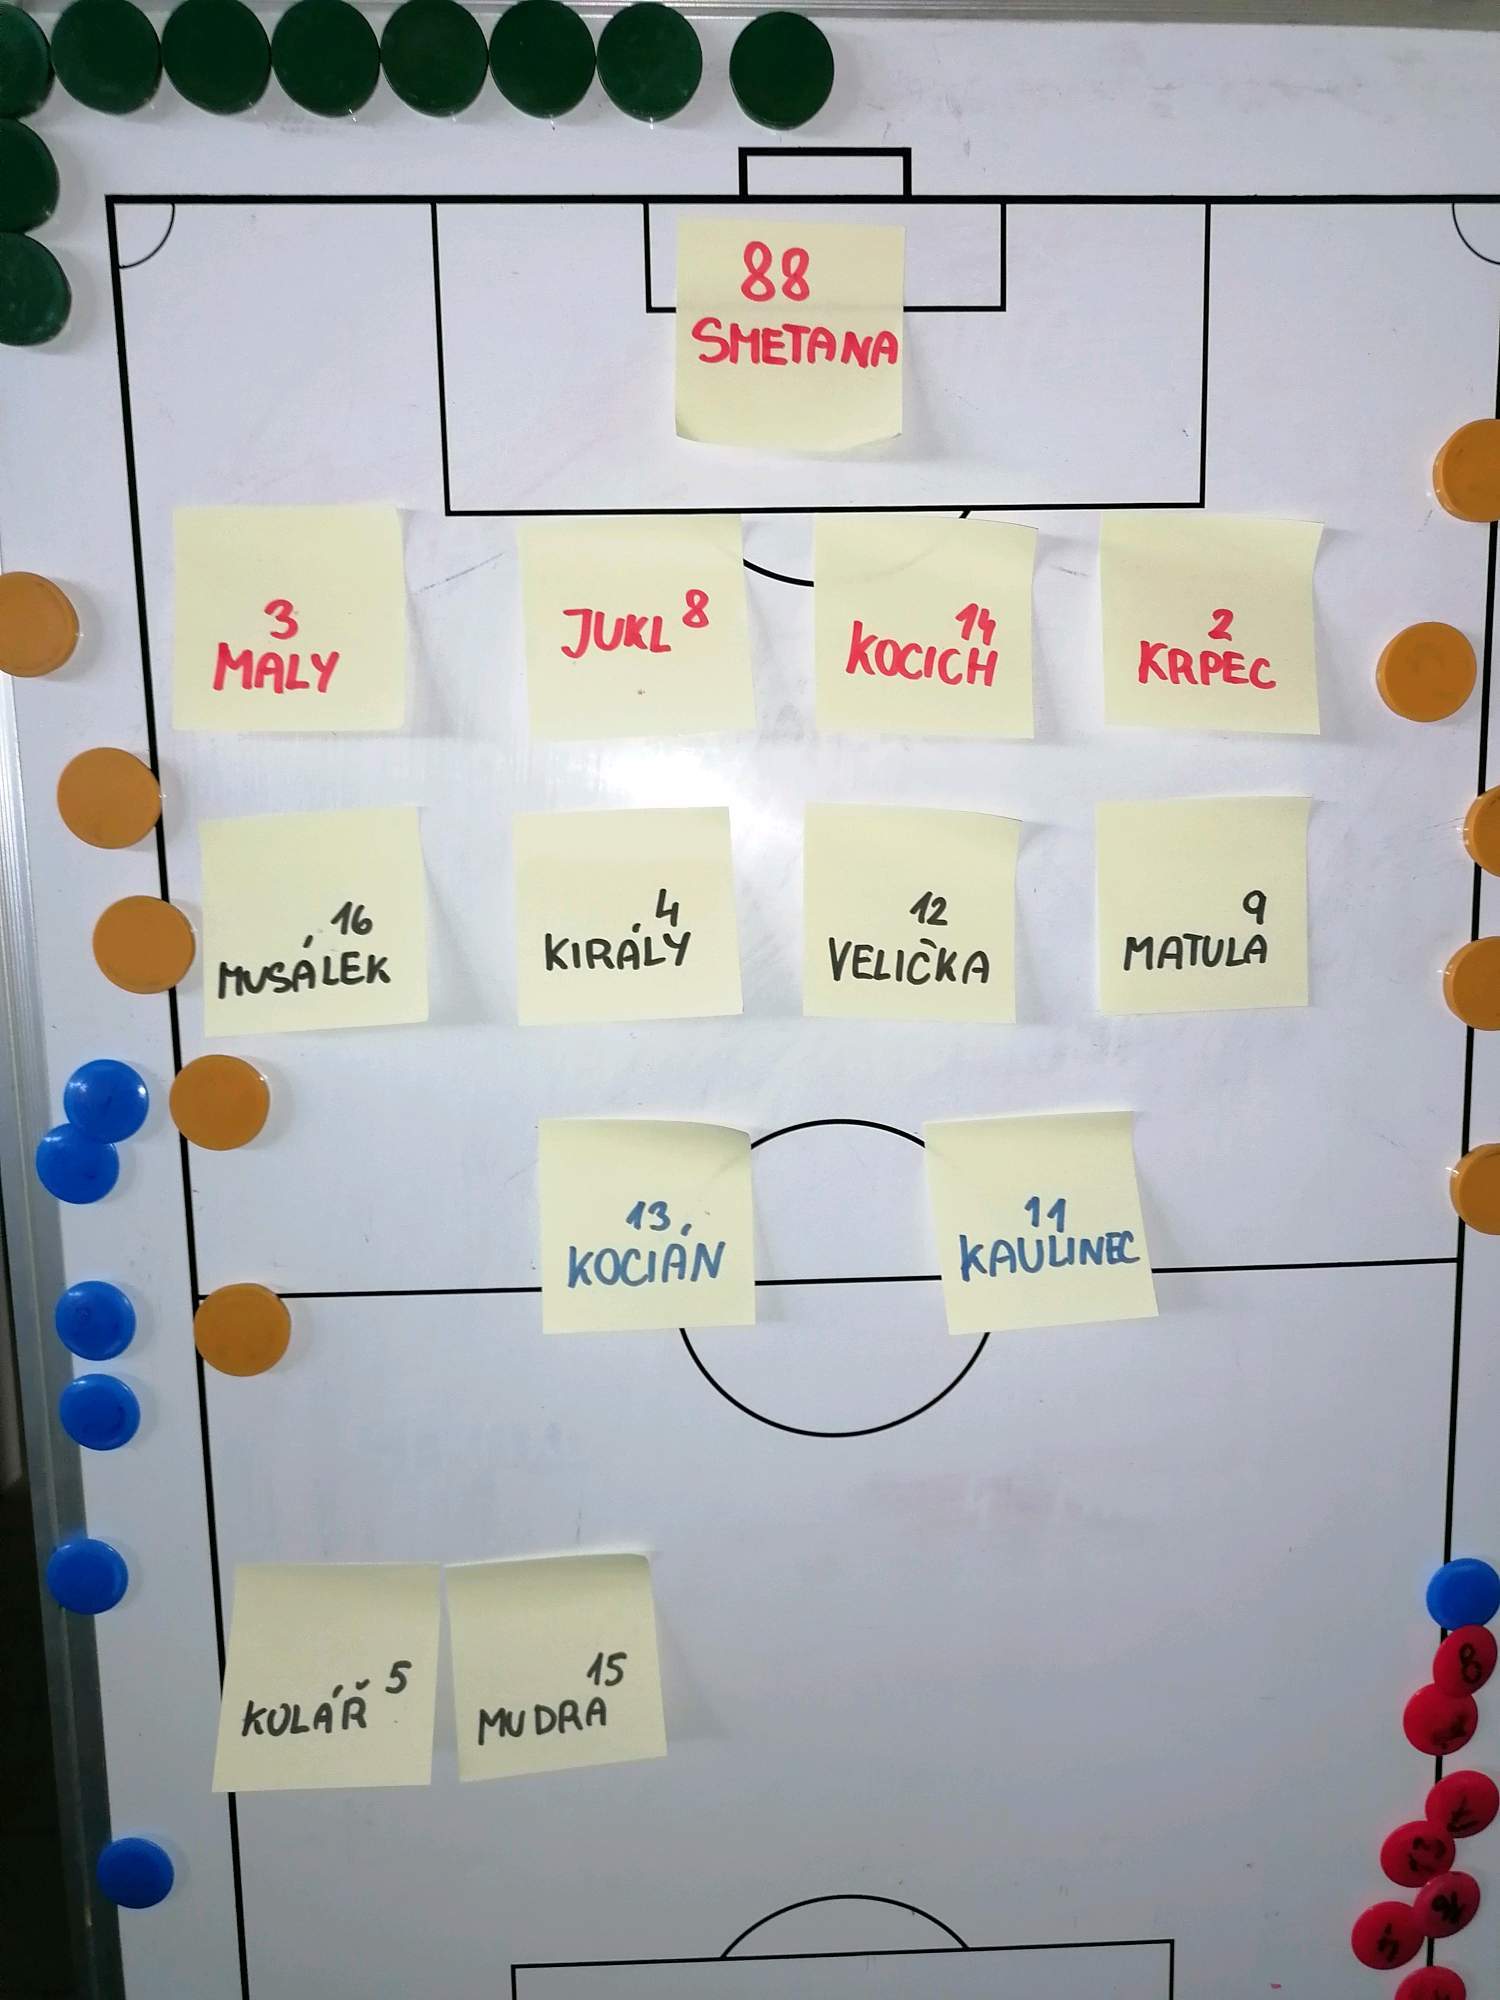 88
SMETANA
3
MALY
JUKL 8
14
KOCICH
2
KRPEC
16
MUSÁLEK
4
KIRÁLY
12
VELIČKA
9
MATULA
13
KOCIÁN
11
KAULINEC
KOLÁŘ 5
15
MUDRA
8
13
16